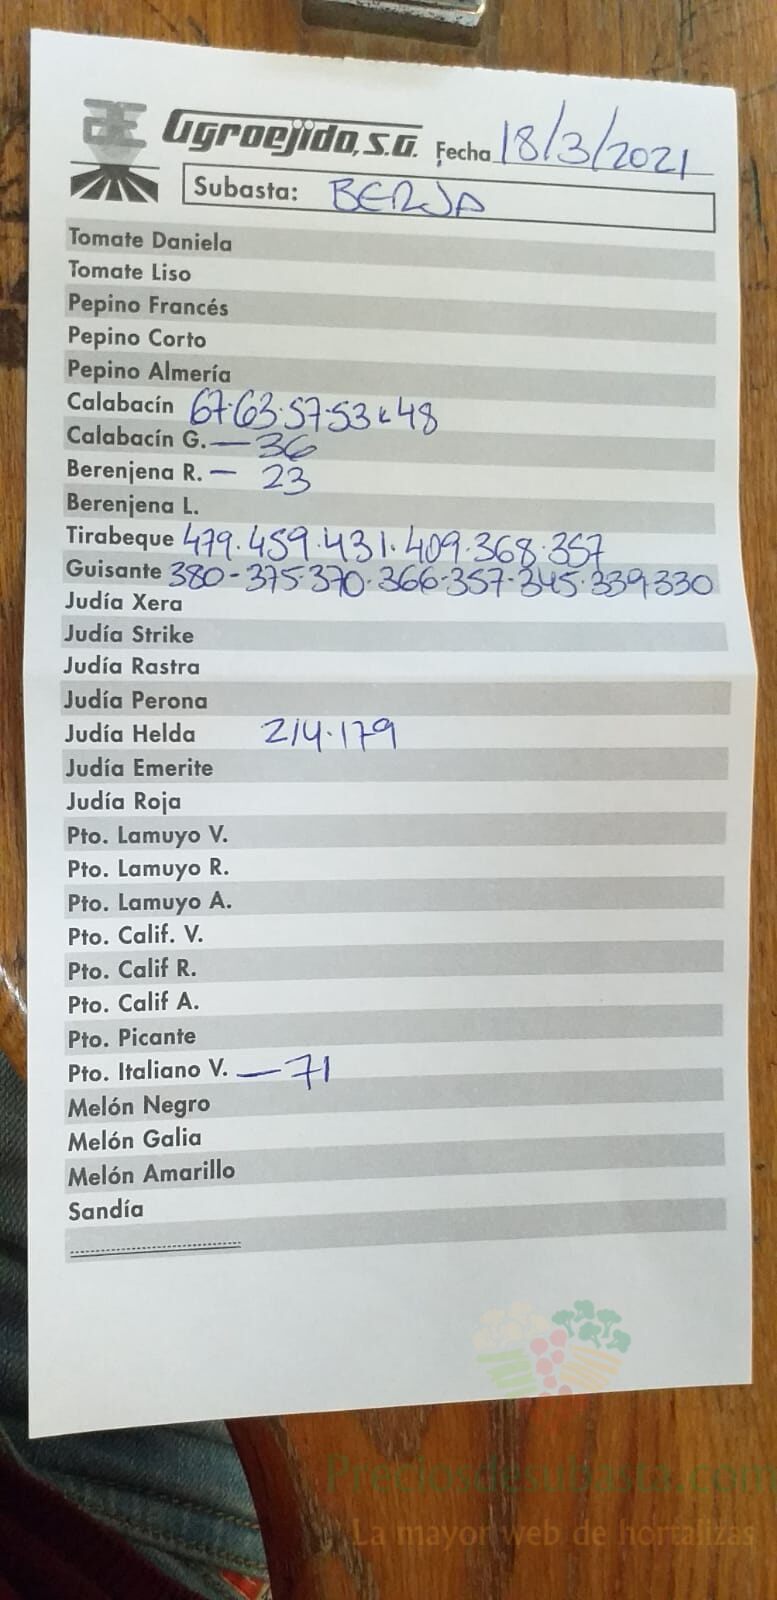 AE Agroejido, S.A. Fecha 18/3/2021
Subasta: BERJA
Tomate Daniela
Tomate Liso
Pepino Francés
Pepino Corto
Pepino Almería
Calabacín 67.63.57.53 48
Calabacín G. — 36
Berenjena R. — 23
Berenjena L.
Tirabeque 479.459.431.409.368.357
Guisante 380-375.370.366-357-345.339 330
Judía Xera
Judía Strike
Judía Rastra
Judía Perona
Judía Helda 214.179
Judía Emerite
Judía Roja
Pto. Lamuyo V.
Pto. Lamuyo R.
Pto. Lamuyo A.
Pto. Calif. V.
Pto. Calif R.
Pto. Calif A.
Pto. Picante
Pto. Italiano V. — 71
Melón Negro
Melón Galia
Melón Amarillo
Sandía
Preciosdesubasta.com
La mayor web de hortalizas